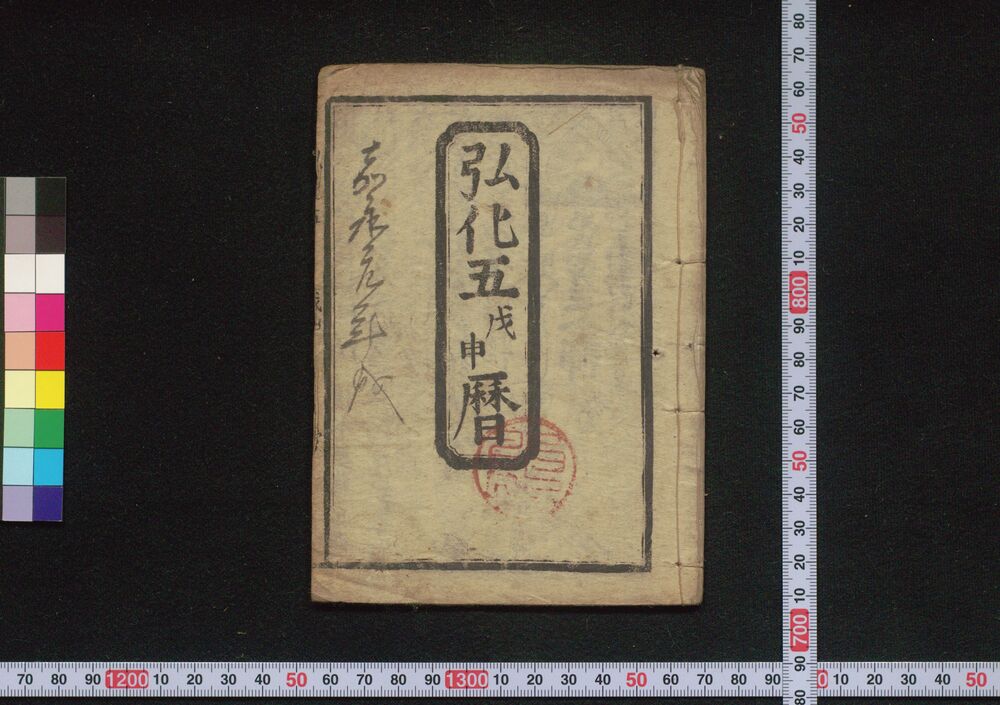 弘化五戊申暦
嘉永元年戊
70 80 90 1200 10 20 30 40 50 60 70 80 90 1300 10 20 30 40 50 60 70 80 90 0 10 20 30 40 50
80 70 60 50 40 30 20 10 800 90 80 70 60 50 40 30 20 10 700 90 80